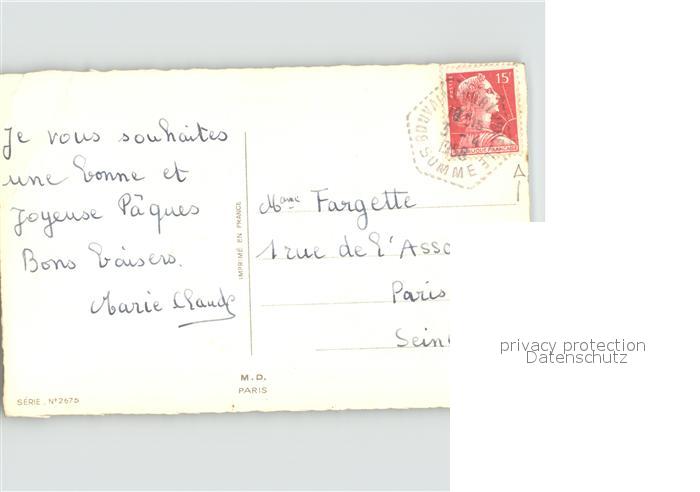 Je vous souhaites
une bonne et
Joyeuse Pâques
Bons baisers.
Marie Claude
SÉRIE. N°2675
IMPRIMÉ EN FRANCE
M.D.
PARIS
15F
POSTES
RÉPUBLIQUE FRANÇAISE
SOMME
Mme Fargette
1 rue de l'Asso
Paris
Sein
privacy protection
Datenschutz